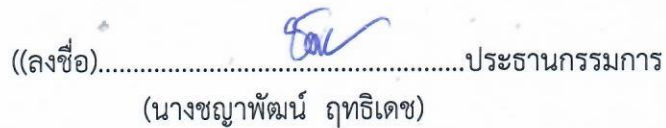 ((ลงชื่อ)......................................................ประธานกรรมการ
(นางชญาพัฒน์ ฤทธิเดช)